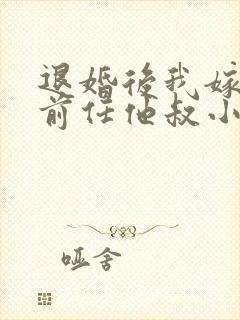 退婚後我嫁
前任他叔小
哑舍